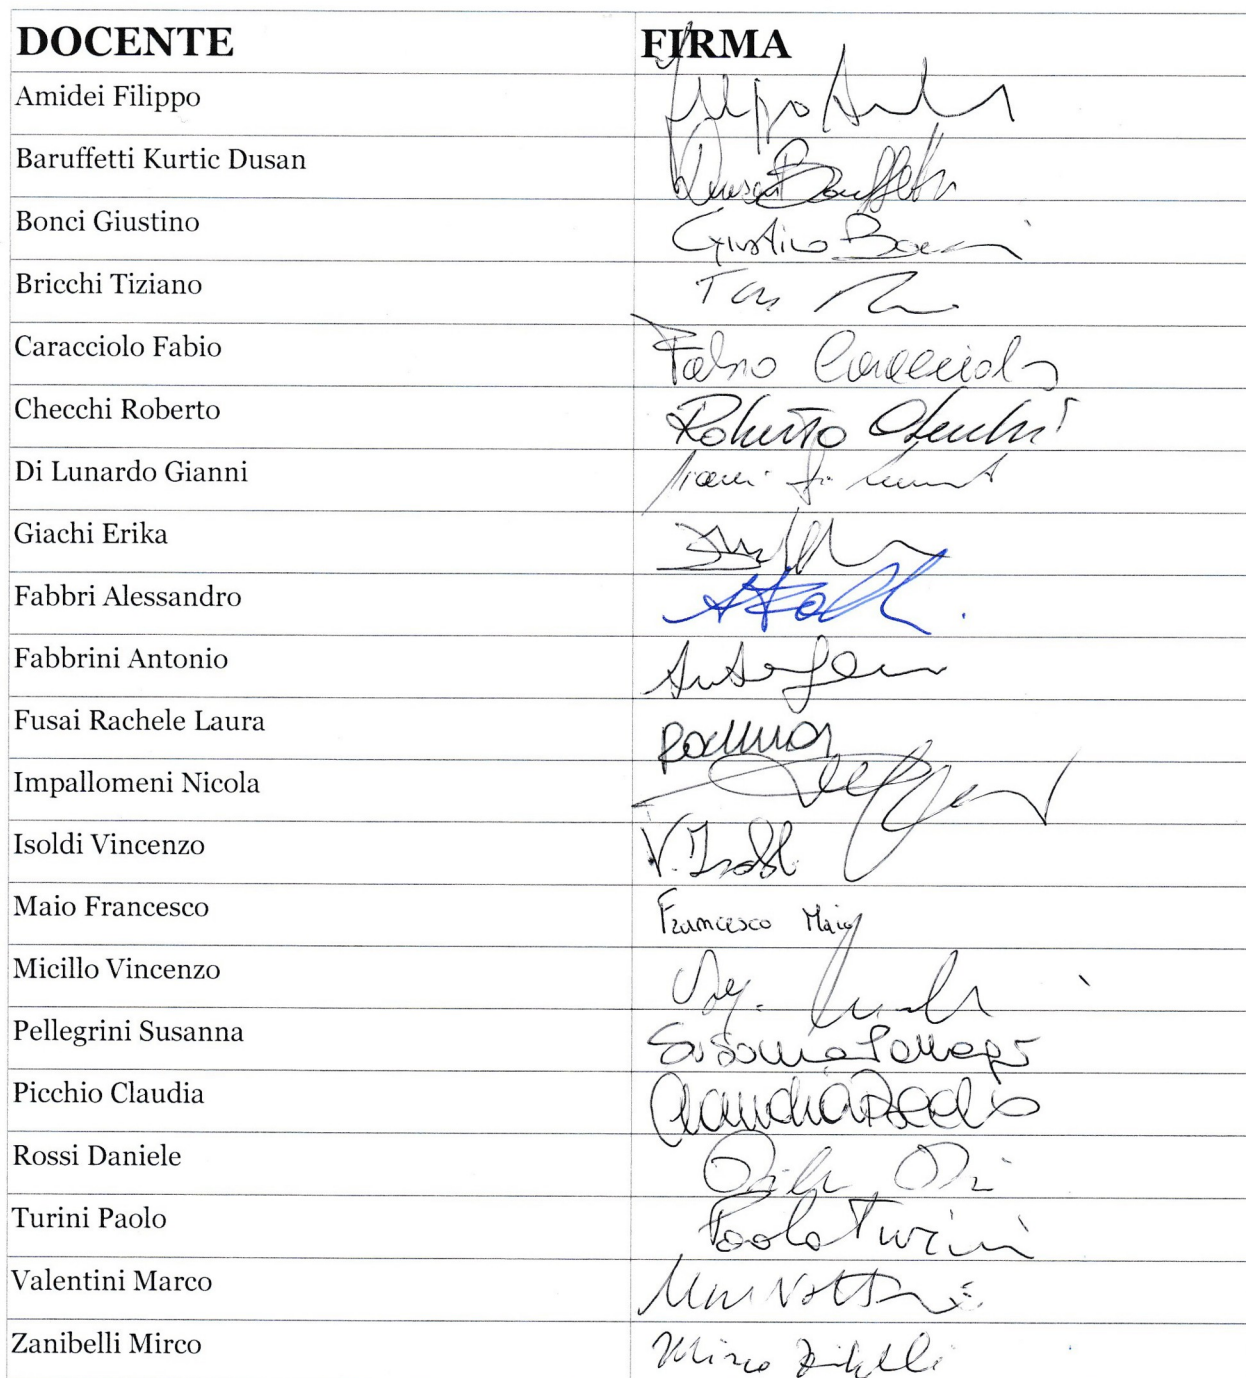 DOCENTE FIRMA
Amidei Filippo Filippo
Baruffetti Kurtic Dusan Dusan Baruffetti
Bonci Giustino Giustino Bonci
Bricchi Tiziano
Caracciolo Fabio Fabio Caracciolo
Checchi Roberto Roberto Checchi
Di Lunardo Gianni Gianni Di
Giachi Erika
Fabbri Alessandro
Fabbrini Antonio
Fusai Rachele Laura
Impallomeni Nicola
Isoldi Vincenzo V. Isoldi
Maio Francesco Francesco Maio
Micillo Vincenzo
Pellegrini Susanna Susanna
Picchio Claudia Claudia Picchio
Rossi Daniele
Turini Paolo Paolo Turini
Valentini Marco
Zanibelli Mirco Mirco Zanibelli